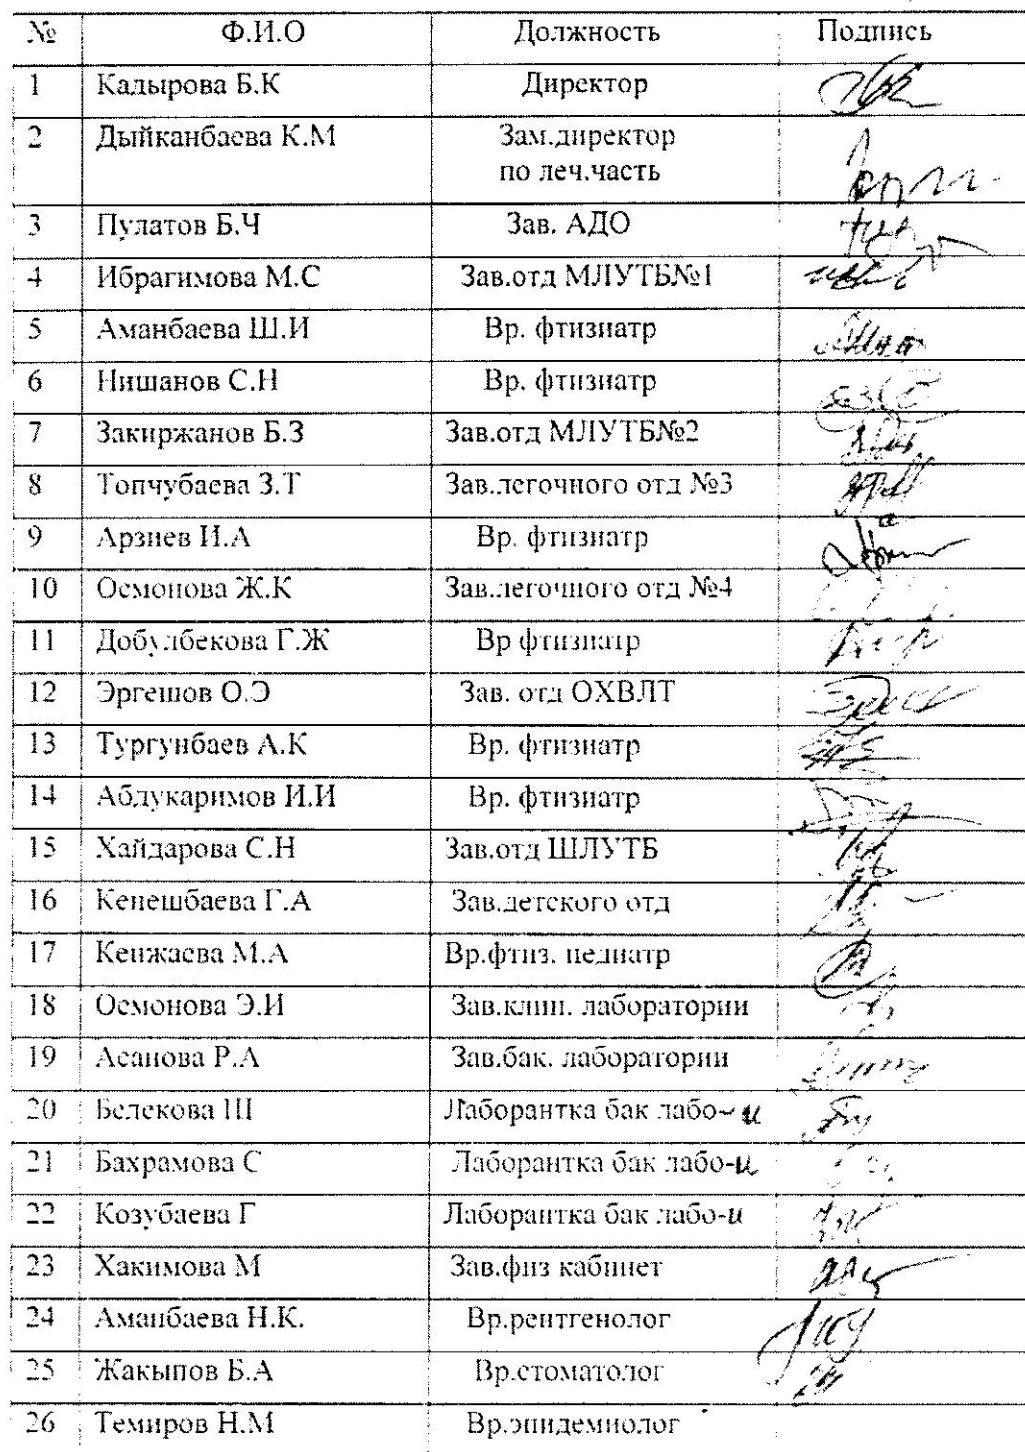 № Ф.И.О Должность Подпись
1 Кадырова Б.К Директор
2 Дыйканбаева К.М Зам.директор
по леч.часть
3 Пулатов Б.Ч Зав. АДО
4 Ибрагимова М.С Зав.отд МЛУТБ№1
5 Аманбаева Ш.И Вр. фтизиатр
6 Нишанов С.Н Вр. фтизиатр
7 Закиржанов Б.З Зав.отд МЛУТБ№2
8 Топчубаева З.Т Зав.легочного отд №3
9 Арзиев И.А Вр. фтизиатр
10 Осмонова Ж.К Зав.легочного отд №4
11 Добулбекова Г.Ж Вр фтизиатр
12 Эргешов О.Э Зав. отд ОХВЛТ
13 Тургунбаев А.К Вр. фтизиатр
14 Абдукаримов И.И Вр. фтизиатр
15 Хайдарова С.Н Зав.отд ШЛУТБ
16 Кенешбаева Г.А Зав.детского отд
17 Кенжаева М.А Вр.фтиз. педиатр
18 Осмонова Э.И Зав.клин. лаборатории
19 Асанова Р.А Зав.бак. лаборатории
20 Белекова Ш Лаборантка бак лабо-и
21 Бахрамова С Лаборантка бак лабо-и
22 Козубаева Г Лаборантка бак лабо-и
23 Хакимова М Зав.физ кабинет
24 Аманбаева Н.К. Вр.рентгенолог
25 Жакыпов Б.А Вр.стоматолог
26 Темиров Н.М Вр.эпидемиолог